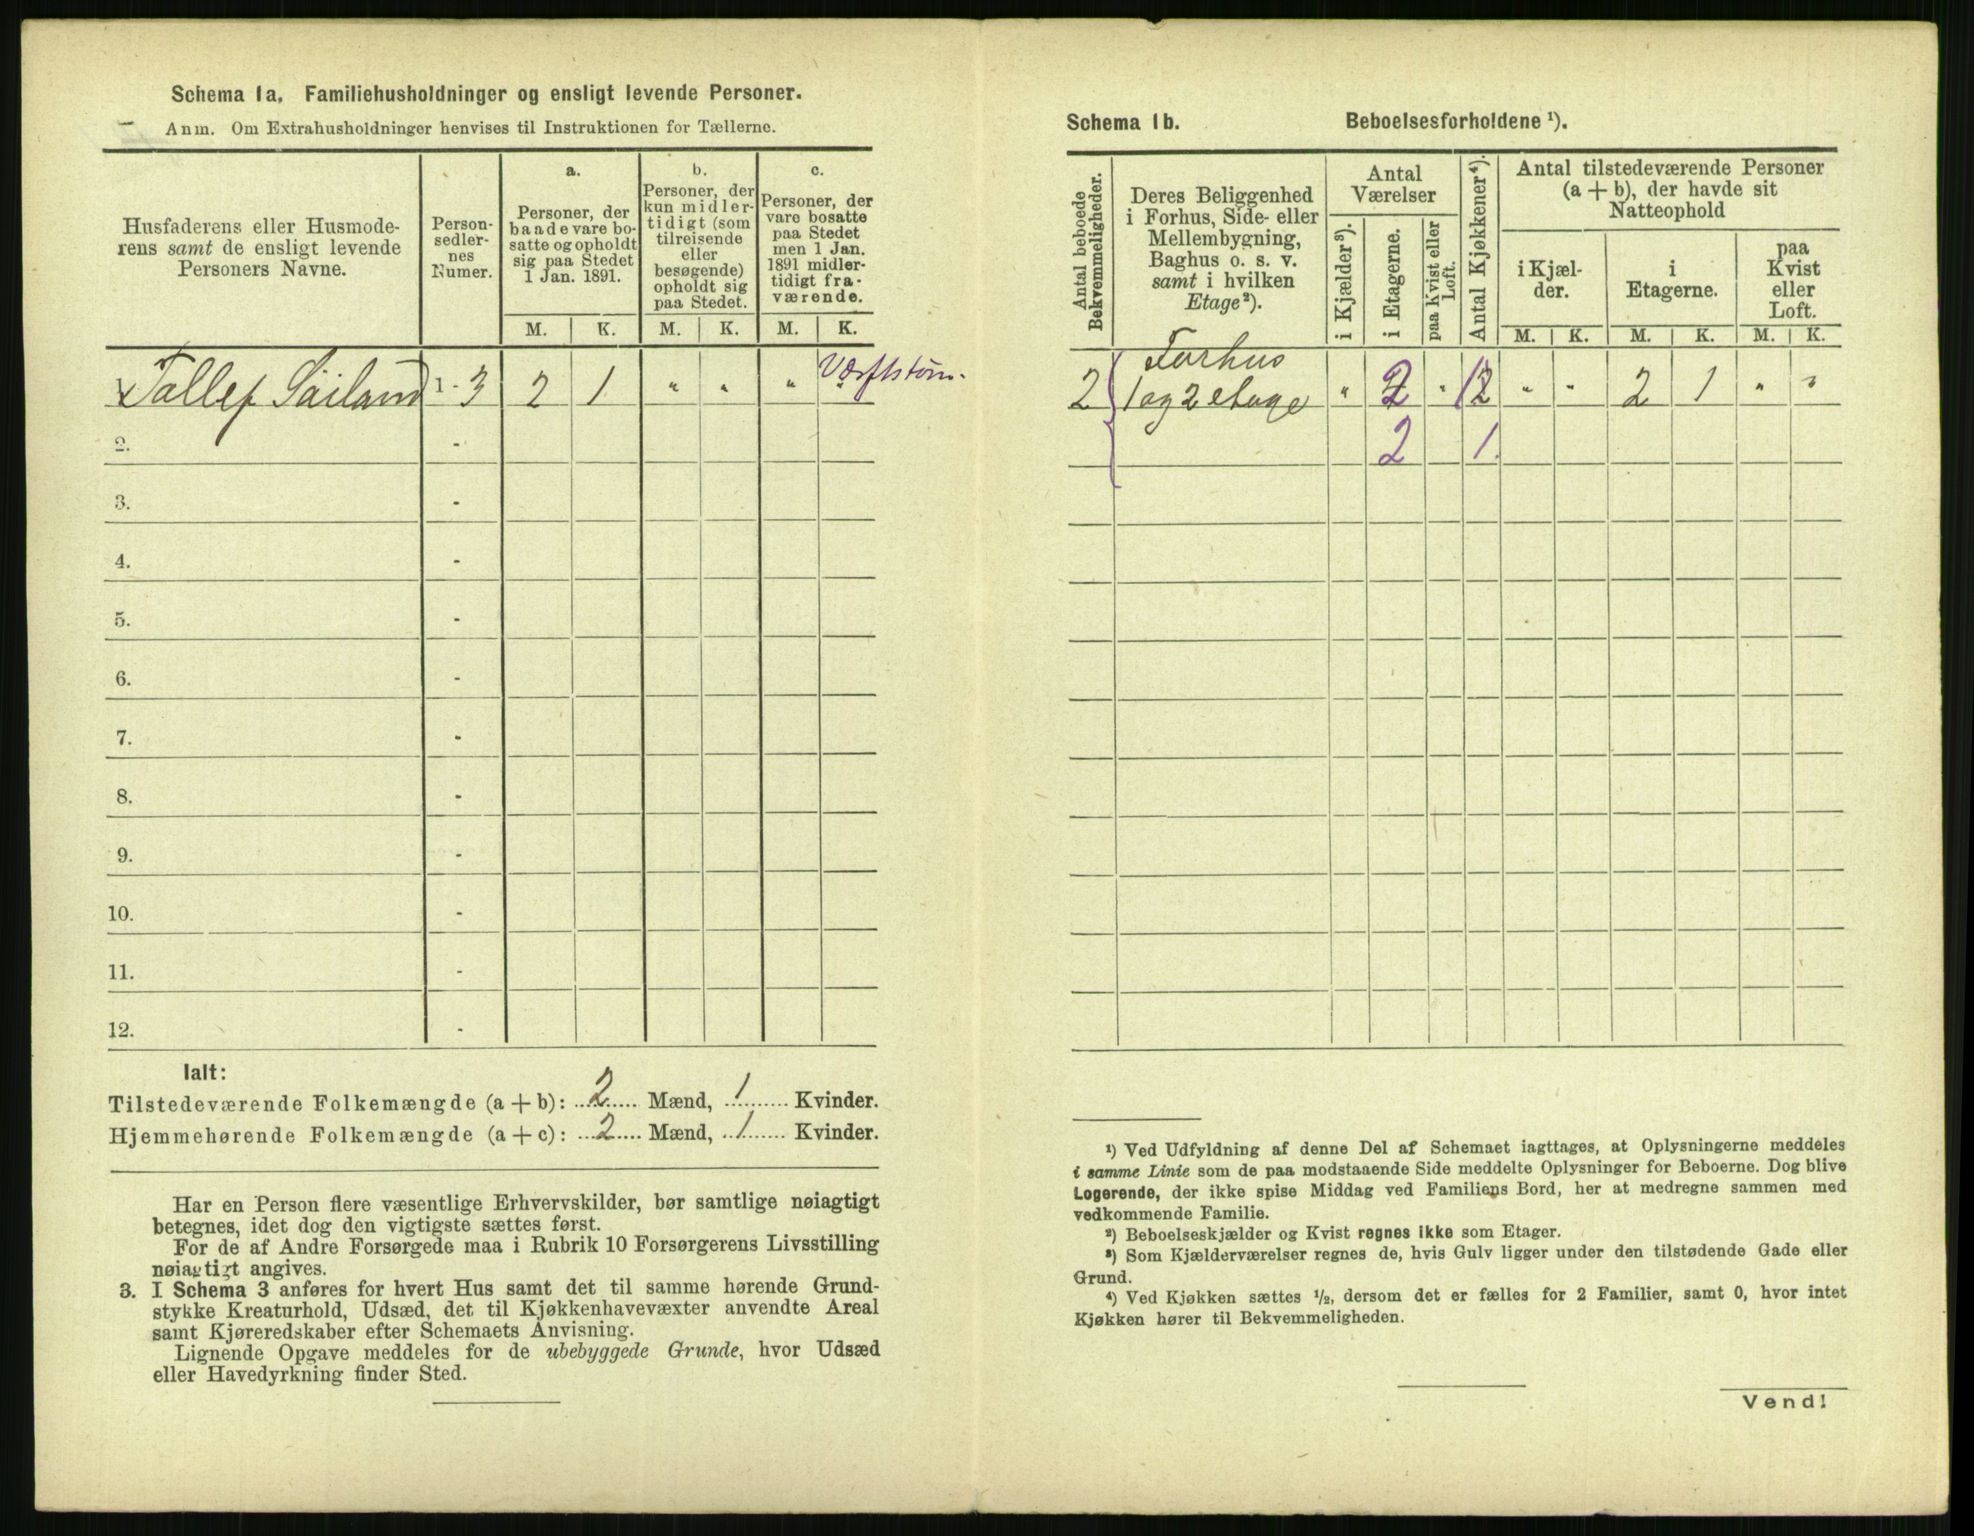 Schema 1a. Familiehusholdninger og ensligt levende Personer.
Anm. Om Extrahusholdninger henvises til Instruktionen for Tællerne.
Husfaderens eller Husmode-
rens samt de ensligt levende
Personers Navne.
Person-
sedler-
nes
Numer.
a.
Personer, der
baade vare bo-
satte og opholdt
sig paa Stedet
1 Jan. 1891.
b.
Personer, der
kun midler-
tidigt (som
tilreisende
eller
besøgende)
opholdt sig
paa Stedet.
c.
Personer, der
vare bosatte
paa Stedet
men 1 Jan.
1891 midler-
tidigt fra-
værende.
M. K. M. K. M. K.
Tallef Sailand 1 - 3 2 1 " " "
2. -
3. -
4. -
5. -
6. -
7. -
8. -
9. -
10. -
11. -
12. -
Ialt:
Tilstedeværende Folkemængde (a + b): 2 Mænd, 1 Kvinder.
Hjemmehørende Folkemængde (a + c): 2 Mænd, 1 Kvinder.
Har en Person flere væsentlige Erhvervskilder, bør samtlige nøiagtigt
betegnes, idet dog den vigtigste sættes først.
For de af Andre Forsørgede maa i Rubrik 10 Forsørgerens Livsstilling
nøiagtigt angives.
3. I Schema 3 anføres for hvert Hus samt det til samme hørende Grund-
stykke Kreaturhold, Udsæd, det til Kjøkkenhavevæxter anvendte Areal
samt Kjøreredskaber efter Schemaets Anvisning.
Lignende Opgave meddeles for de ubebyggede Grunde, hvor Udsæd
eller Havedyrkning finder Sted.
Schema 1b. Beboelsesforholdene ¹).
Antal beboede
Bekvemmeligheder.
Deres Beliggenhed
i Forhus, Side- eller
Mellembygning,
Baghus o. s. v.
samt i hvilken
Etage²).
Antal
Værelser
i Kjælder³).
i Etagerne.
paa Kvist eller
Loft.
Antal Kjøkkener⁴).
Antal tilstedeværende Personer
(a + b), der havde sit
Natteophold
i Kjæl-
der.
i
Etagerne.
paa
Kvist
eller
Loft.
M. K. M. K. M. K.
Forhus
2 1 og 2 etage " 2 " 12 " " 2 1 " "
2 1
¹) Ved Udfyldning af denne Del af Schemaet iagttages, at Oplysningerne meddeles
i samme Linie som de paa modstaaende Side meddelte Oplysninger for Beboerne. Dog blive
Logerende, der ikke spise Middag ved Familiens Bord, her at medregne sammen med
vedkommende Familie.
²) Beboelseskjælder og Kvist regnes ikke som Etager.
³) Som Kjælderværelser regnes de, hvis Gulv ligger under den tilstødende Gade eller
Grund.
⁴) Ved Kjøkken sættes ½, dersom det er fælles for 2 Familier, samt 0, hvor intet
Kjøkken hører til Bekvemmeligheden.
Vend!